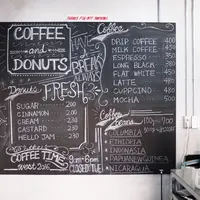 COFFEE
and
DONUTS
HAVE
BREAK
Donuts
FRESH
SUGAR 200
CINNAMON 200
CREAM 200
CASTARD 230
HELLO JAM 230
COFFEE TIME
west 2015
9am-6pm
CLOSED TUE
Coffee
DRIP COFFEE 400
MILK COFFEE 450
ESPRESSO 350
LONG BLACK 380
FLAT WHITE 480
LATTE 480
CUPPCINO 480
MOCHA 500
Coffee beans
100g/500
COLUMBIA
ETHIOPIA
INDONASIA
PAPUANEWGUINEA
NICARAGUA